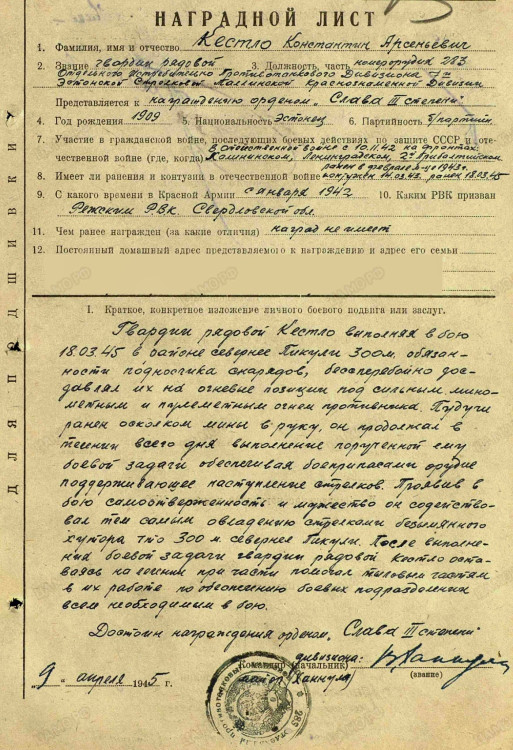 НАГРАДНОЙ ЛИСТ
1. Фамилия, имя и отчество Кестло Константин Арсеньевич
2. Звание гвардии рядовой 3. Должность, часть номер орудия 283
Отдельного Истребительно Противотанкового Дивизиона 7ой
Эстонской Стрелковой Таллинской Краснознаменной Дивизии
Представляется к награждению орденом „Слава III степени"
4. Год рождения 1909 5. Национальность Эстонец 6. Партийность б/партийн.
7. Участие в гражданской войне, последующих боевых действиях по защите СССР и оте-
чественной войне (где, когда) В Отечественной войне с 10.11.42 на фронтах
Калининском, Ленинградском, 2ом Прибалтийском
8. Имеет ли ранения и контузии в отечественной войне ранен в феврале 1943
14.03.43. ранен 18.03.45
9. С какого времени в Красной Армии с января 1942 10. Каким РВК призван
Режским РВК. Свердловской обл.
11. Чем ранее награжден (за какие отличия) наград не имеет
12. Постоянный домашный адрес представляемого к награждению и адрес его семьи
I. Краткое, конкретное изложение личного боевого подвига или заслуг.
Гвардии рядовой Кестло выполняя в бою
18.03.45 в районе севернее Пикули 300 м. обязан-
ности подносчика снарядов, бесперебойно дос-
давлял их на огневые позиции под сильным мино-
метным и пулеметным огнем противника. Будучи
ранен осколком мины в руку, он продолжал в
течении всего дня выполнение порученной ему
боевой задачи обеспечивая боеприпасами орудие
поддерживающее наступление стрелков. Проявив в
бою самоотверженность и мужество он содейство-
вал тем самым овладению стрелками безымянного
хутора что 300 м. севернее Пикули. После выполне-
ния боевой задачи гвардии рядовой Кестло оста-
ваясь на лечении при части помогал тыловым частям
в их работе по обеспечению боевых подразделений
всем необходимым в бою.
Достоин награждения орденом „Слава III степени"
дивизиона:
Командир (начальник)
майор (Ханнула)
(звание)
„9" апреля 1945 г.
ДЛЯ ПОДШИВКИ